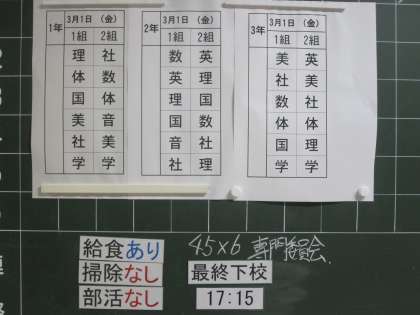 1年 3月1日 (金)
1組 2組
理 社
体 数
国 体
美 音
社 美
学 学
2年 3月1日 (金)
1組 2組
数 英
英 理
理 国
国 数
音 社
社 理
3年 3月1日 (金)
1組 2組
美 英
社 美
数 社
体 体
国 理
学 学
給食あり 45×6 専門委員会
掃除なし 最終下校
部活なし 17:15